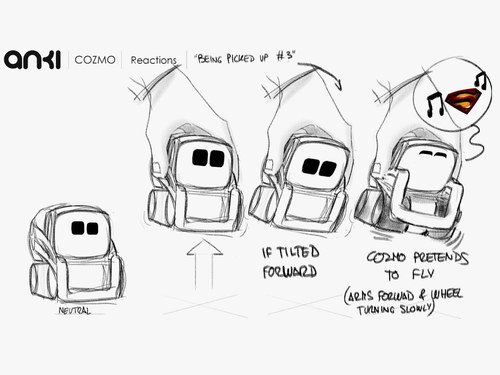 anki COZMO Reactions "BEING PICKED UP #3"
NEUTRAL
IF TILTED
FORWARD
COZMO PRETENDS
TO FLY
(ARMS FORWAD & WHEEL
TURNING SLOWLY)
S